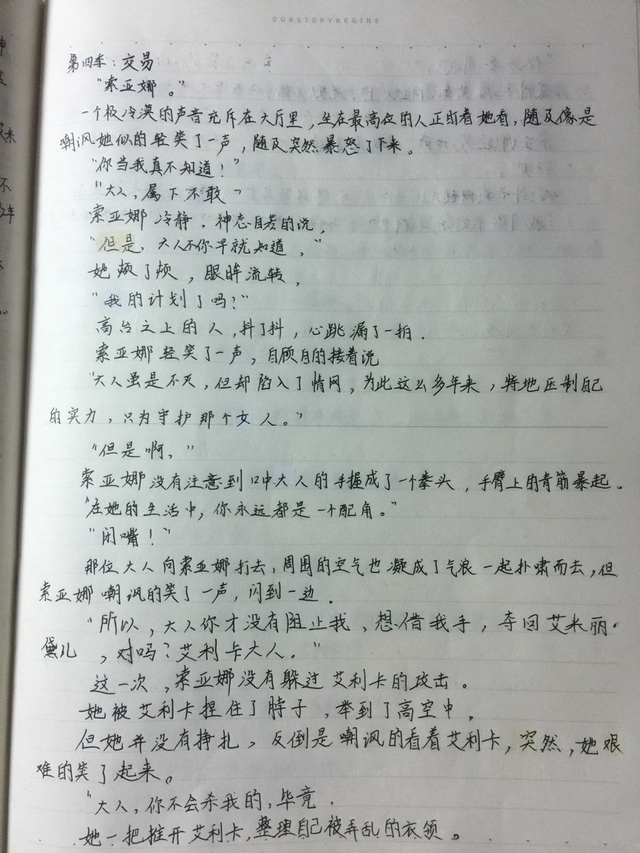 OURSTORYBEGINS
第四章：交易
"索亚娜。"
一个极冷漠的声音充斥在大厅里，坐在最高位的人正盯着她看，随及像是
嘲讽她似的轻笑了一声，随及突然暴怒了下来。
"你当我真不知道！"
"大人，属下不敢"
索亚娜冷静，神态自若的说，
"但是，大人不你早就知道，"
她顿了顿，眼眸流转，
"我的计划了吗？"
高台之上的人，抖了抖，心跳漏了一拍．
索亚娜轻笑了一声，自顾自的接着说
"大人虽是不灭，但却陷入了情网，为此这么多年来，特地压制自己
的实力，只为守护那个女人。"
"但是啊，"
索亚娜没有注意到口中大人的手握成了一个拳头，手臂上的青筋暴起。
"在她的生活中，你永远都是一个配角。"
"闭嘴！"
那位大人向索亚娜打去，周围的空气也凝成了气浪一起扑啸而去，但
索亚娜嘲讽的笑了一声，闪到一边．
"所以，大人你才没有阻止我，想借我手，夺回艾米丽·
黛儿，对吗？艾利卡大人。"
这一次，索亚娜没有躲过艾利卡的攻击。
她被艾利卡捏住了脖子，举到了高空中，
但她并没有挣扎，反倒是嘲讽的看着艾利卡，突然，她艰
难的笑了起来。
"大人，你不会杀我的，毕竟．
她一把推开艾利卡，整理自己被弄乱的衣领。